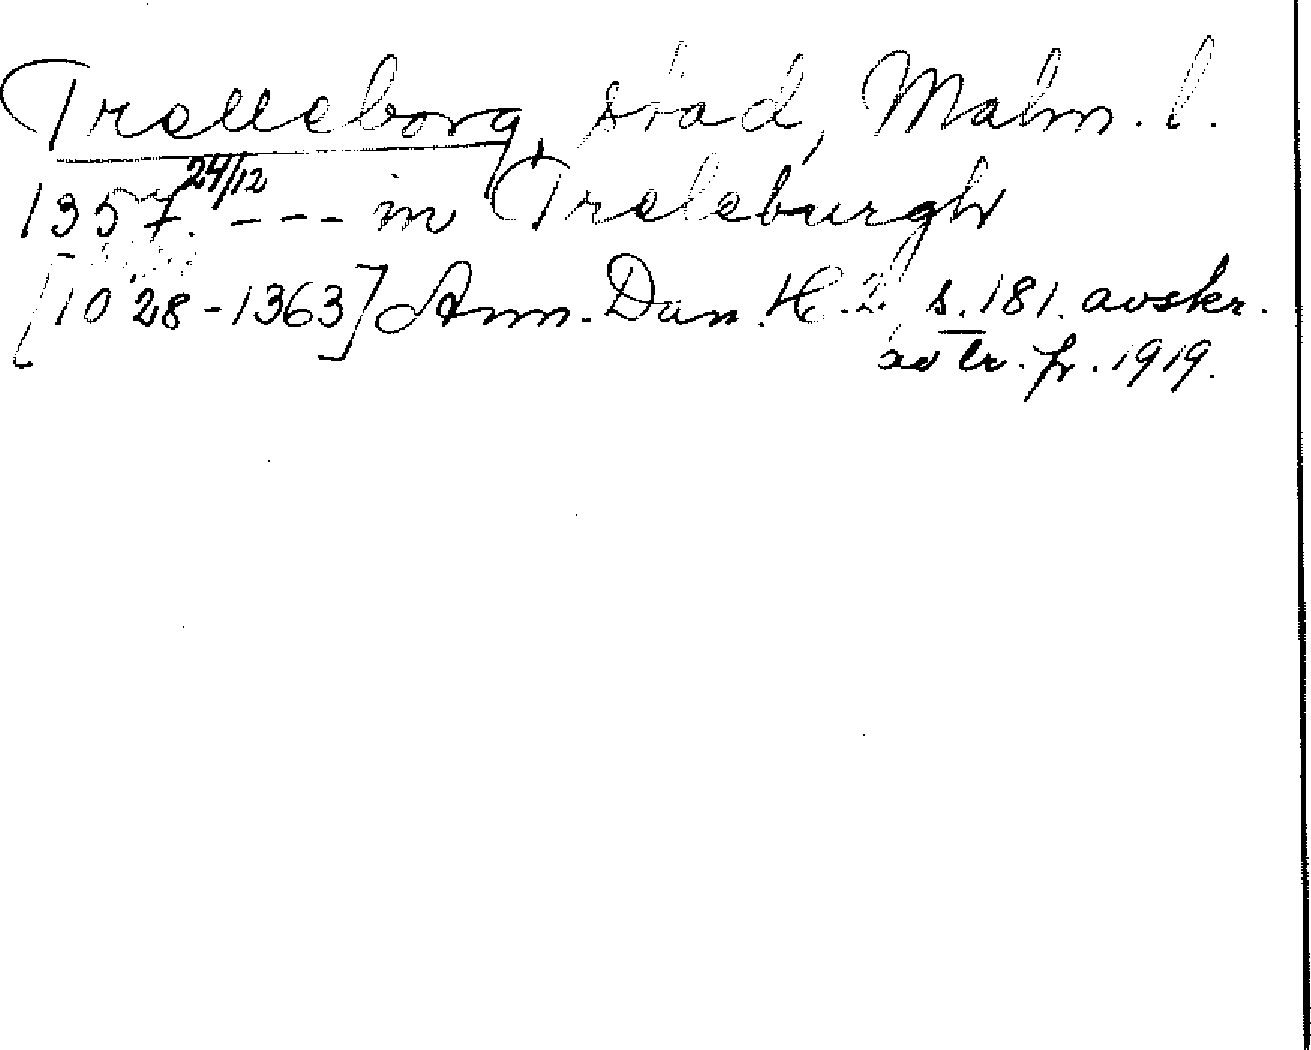 Trelleborg, stad, Malm. l.
1357 24/12. - - - in Treleburgh
[1028-1363] Ann. Dan. H. 2, s. 181. avskr.
av tr. fr. 1919.